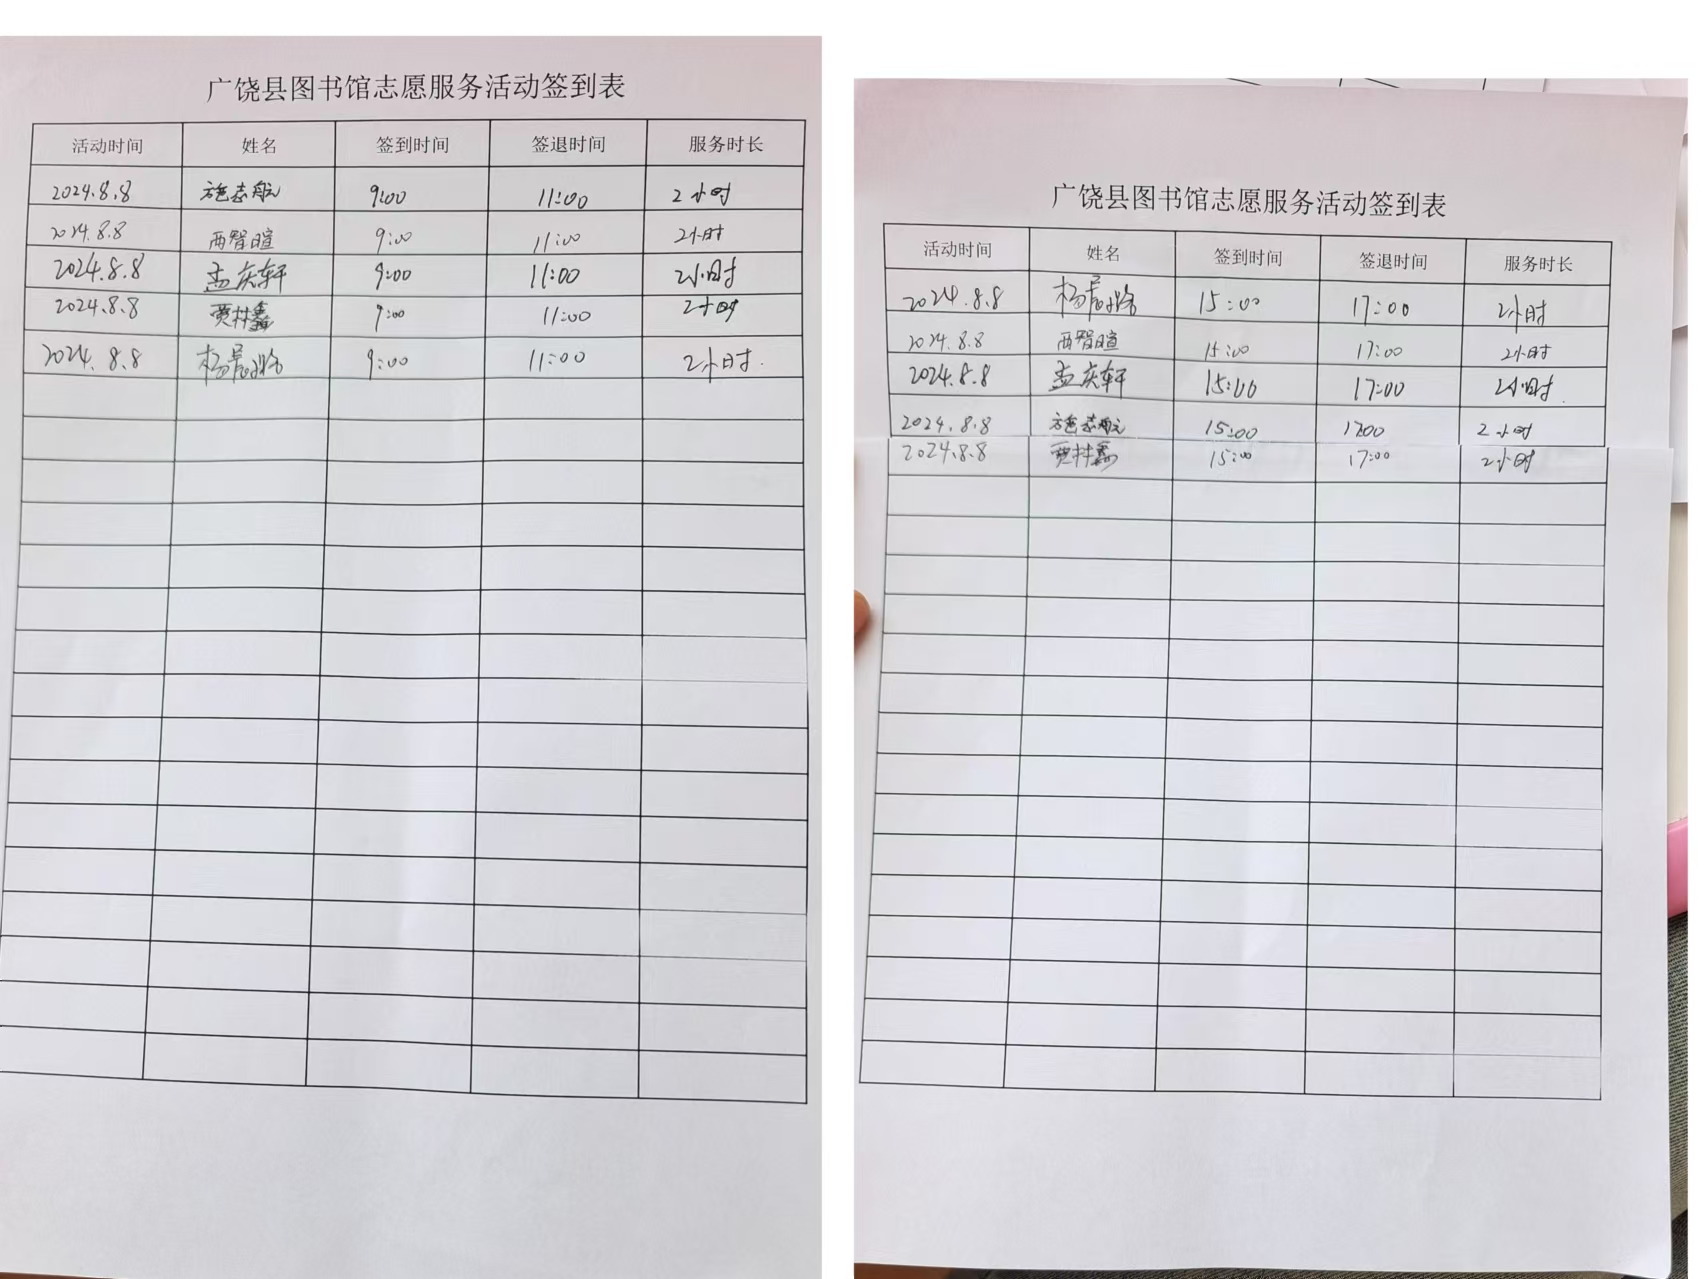 广饶县图书馆志愿服务活动签到表
活动时间 姓名 签到时间 签退时间 服务时长
2024.8.8 施志航 9:00 11:00 2小时
2024.8.8 两智暄 9:00 11:00 2小时
2024.8.8 孟庆轩 9:00 11:00 2小时
2024.8.8 贾林鑫 9:00 11:00 2小时
2024.8.8 杨 9:00 11:00 2小时.
广饶县图书馆志愿服务活动签到表
活动时间 姓名 签到时间 签退时间 服务时长
2024.8.8 杨 15:00 17:00 2小时
2024.8.8 两智暄 15:00 17:00 2小时
2024.8.8 孟庆轩 15:00 17:00 2小时.
2024.8.8 施志航 15:00 17:00 2小时
2024.8.8 贾林鑫 15:00 17:00 2小时